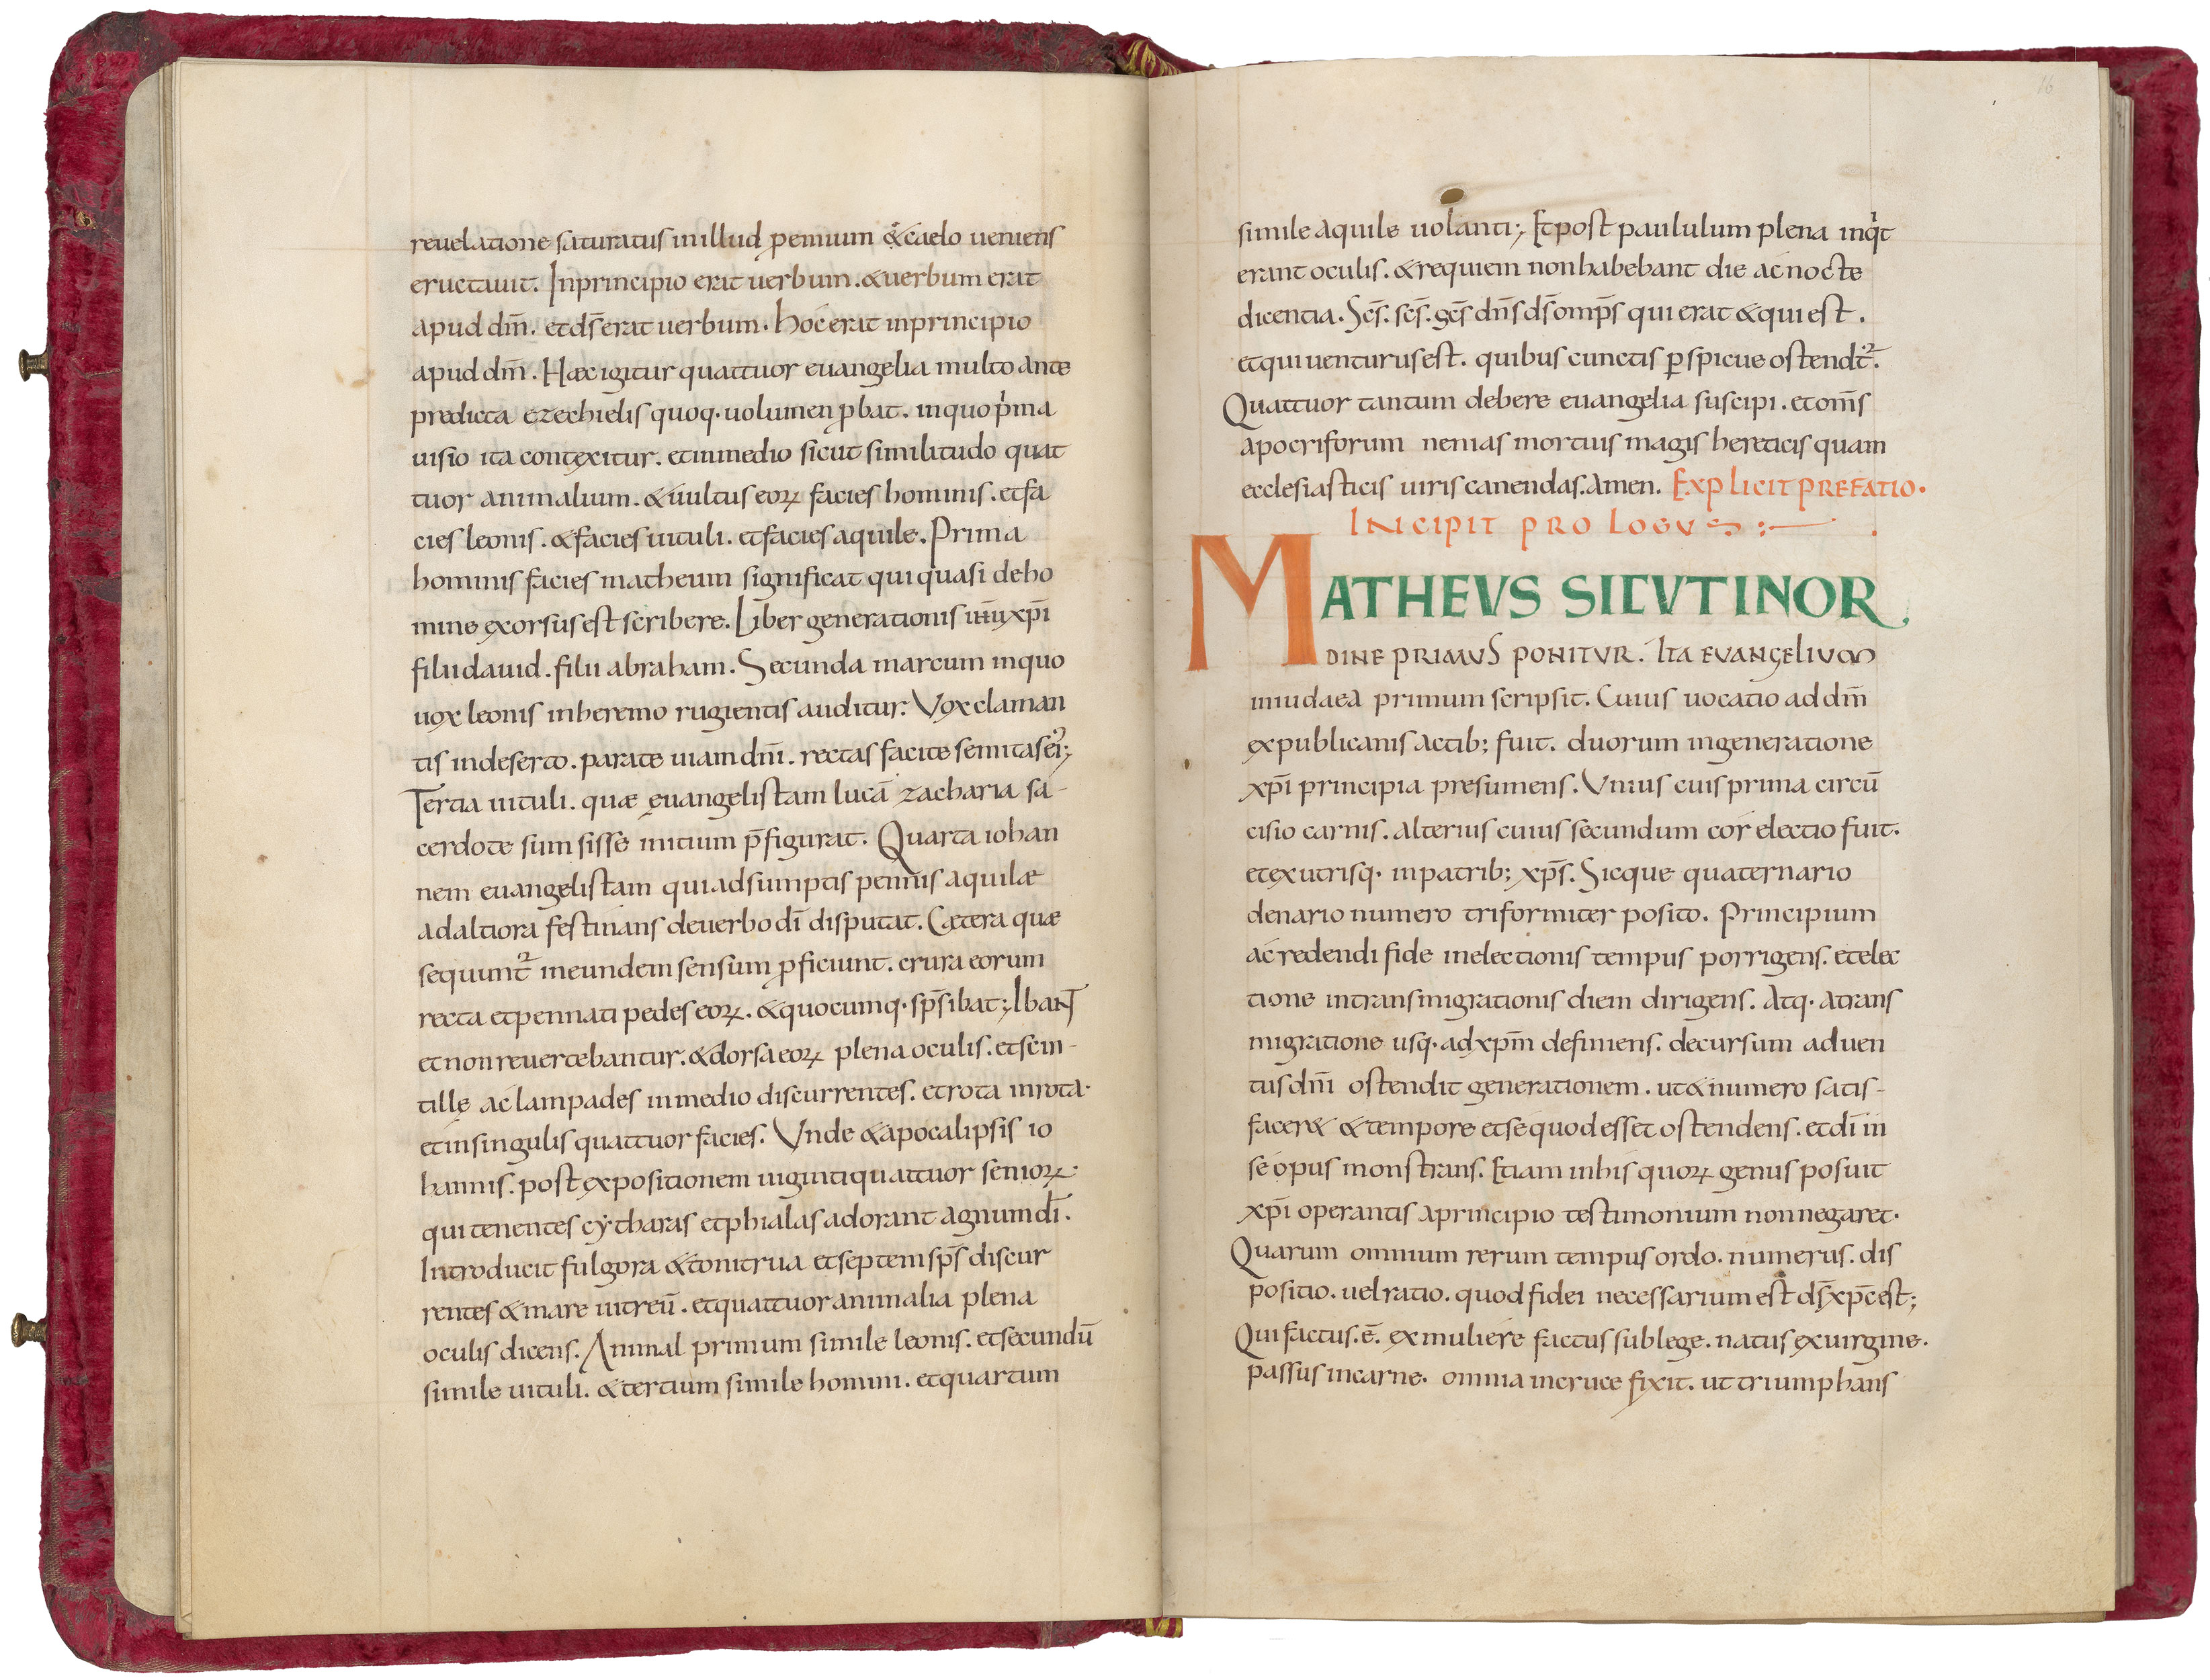 reuelatione saturatus in illud proemium & caelo ueniens
eructauit. In principio erat uerbum. & uerbum erat
apud dm̄. et ds̄ erat uerbum. hoc erat in principio
apud dm̄. Haec igitur quattuor euangelia multo ante
predicta ezechielis quoq. uolumen ꝓbat. in quo pͥma
uisio ita contexitur. et in medio sicut similitudo quat
tuor animalium. & uultus eoꝝ facies hominis. et fa
cies leonis. & facies uituli. et facies aquile. Prima
hominis facies matheum significat qui quasi de ho
mine exorsus est scribere. Liber generationis xp̄i
filii dauid. filii abraham. Secunda marcum in quo
uox leonis in heremo rugientis auditur. Vox claman
tis in deserto. parate uiam dn̄i. rectas facite semitas ei;
Tertia uituli. quæ euangelistam lucā zacharia sa-
cerdote sumsisse initium p̄figurat. Quarta iohan
nem euangelistam qui adsumptis pennis aquilæ
ad altiora festinans de uerbo dī disputat. Cætera quæ
sequunt᷑ in eundem sensum ꝓficiunt. crura eorum
recta et pennati pedes eoꝝ. & quocumq. sp̄s ibat; Ibant
et non reuertebantur. & dorsa eoꝝ plena oculis. et scin-
tille ac lampades in medio discurrentes. et rota in rota.
et in singulis quattuor facies. Vnde & apocalipsis io
hannis. post expositionem uiginti quattuor senioꝝ.
qui tenentes cẏtharas et phialas adorant agnum dī.
Introducit fulgora & tonitrua et septem sp̄s discur
rentes & mare uitreū. et quattuor animalia plena
oculis dicens. Animal primum simile leonis. et secundū
simile uituli. & tertium simile homini. et quartum
16
simile aquile uolanti; Et post paululum plena inqͥt
erant oculis. & requiem non habebant die ac nocte
dicentia. Scs̄. scs̄. scs̄ dn̄s ds̄ omp̄s qui erat & qui est.
et qui uenturus est. quibus cunctis ꝑspicue ostendt᷑.
Quattuor tantum debere euangelia suscipi. et om̄s
apocriforum nenias mortuis magis hereticis quam
ecclesiasticis uiris canendas. Amen. Explicit prefatio.
Incipit prologus
MATHEVS SICVT IN OR
DINE PRIMUS PONITVR. Ita EVANGELIUM
in iudaea primum scripsit. Cuius uocatio ad dm̄
ex publicanis actib; fuit. duorum in generatione
xp̄i principia presumens. Vnius cuis prima circū
cisio carnis. alterius cuius secundum cor electio fuit.
et ex utrisq. in patrib; xp̄s. Sicque quaternario
denario numero triformiter posito. Principium
a credendi fide in electionis tempus porrigens. et elec
tione in transmigrationis diem dirigens. Atq. a trans
migratione usq. ad xpm̄ definiens. decursum aduen
tus dn̄i ostendit generationem. ut & numero satis-
facer& & tempore et se quod esset ostendens. et dī in
se opus monstrans. Etiam in his quoꝝ genus posuit
xp̄i operantis a principio testimonium non negaret.
Quarum omnium rerum tempus ordo. numerus. dis
positio. uel ratio. quod fidei necessarium est ds̄ xp̄c est;
Qui factus. ē. ex muliere factus sub lege. natus ex uirgine.
passus in carne. omnia in cruce fixit. ut triumphans